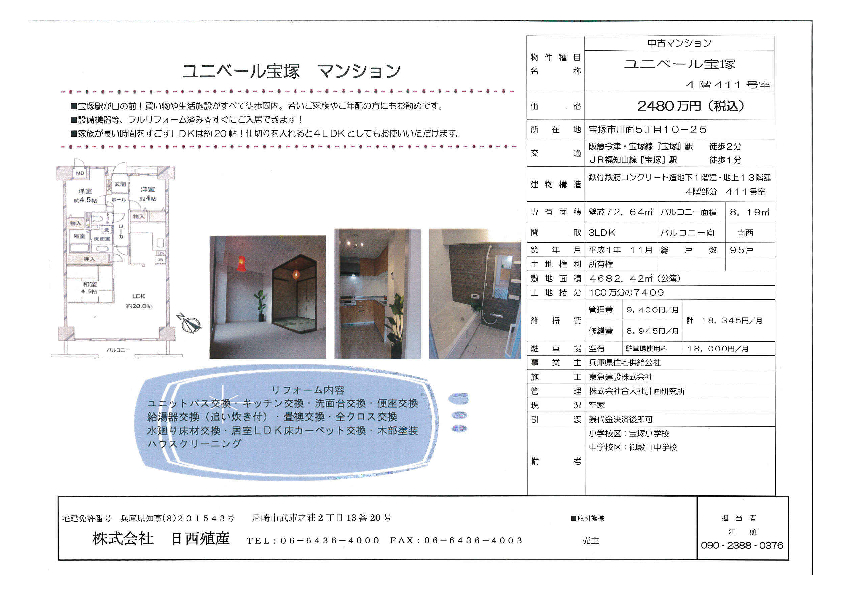 ユニベール宝塚　マンション
■宝塚駅が目の前！買い物や生活施設がすべて徒歩圏内。若いご家族やご年配の方にもお勧めです。
■設備機器等、フルリフォーム済み☆すぐにご入居できます！
■家族が長い時間をすごすＬＤＫは約20帖！仕切りを入れると４ＬＤＫとしてもお使いいただけます。
MB
洋室
約4.5帖
玄関
洋室
約4帖
ホール
物入
物入
浴室
洗面室
押入
和室
4.5帖
LDK
約20.0帖
バルコニー
リフォーム内容
ユニットバス交換・キッチン交換・洗面台交換・便座交換
給湯器交換（追い炊き付）・畳襖交換・全クロス交換
水廻り床材交換・居室ＬＤＫ床カーペット交換・木部塗装
ハウスクリーニング
物件種目　中古マンション
名称　ユニベール宝塚
４階４１１号室
価格　2480万円（税込）
所在地　宝塚市川面５丁目１０－２５
交通　阪急今津・宝塚線『宝塚』駅　徒歩２分
ＪＲ福知山線『宝塚』駅　徒歩１分
建物構造　鉄骨鉄筋コンクリート造地下１階建・地上１３階建
４階部分　４１１号室
専有面積　壁芯７２．６４㎡　バルコニー面積　８．１９㎡
間取　3LDK　バルコニー向　南西
築年月　平成４年　１１月　総戸数　９５戸
土地権利　所有権
敷地面積　４６８２．４２㎡（公簿）
土地持分　100万分の７４０９
維持費　管理費　９，４００円／月　計　１８，３４５円／月
修繕費　８，９４５円／月
駐車場　空有　駐車場使用料　１８，０００円／月
事業主　兵庫県住宅供給公社
施工　東急建設株式会社
管理　株式会社合人社計画研究所
現況　空家
引渡　残代金決済後即可
備考　小学校区：宝塚小学校
中学校区：御殿山中学校
宅建免許番号　兵庫県知事(8)２０１５４３号　尼崎市武庫之荘２丁目１３番２０号
株式会社　日西殖産　ＴＥＬ：０６－６４３６－４０００　ＦＡＸ：０６－６４３６－４００３
■取引態様
売主
担当者
090-2388-0376